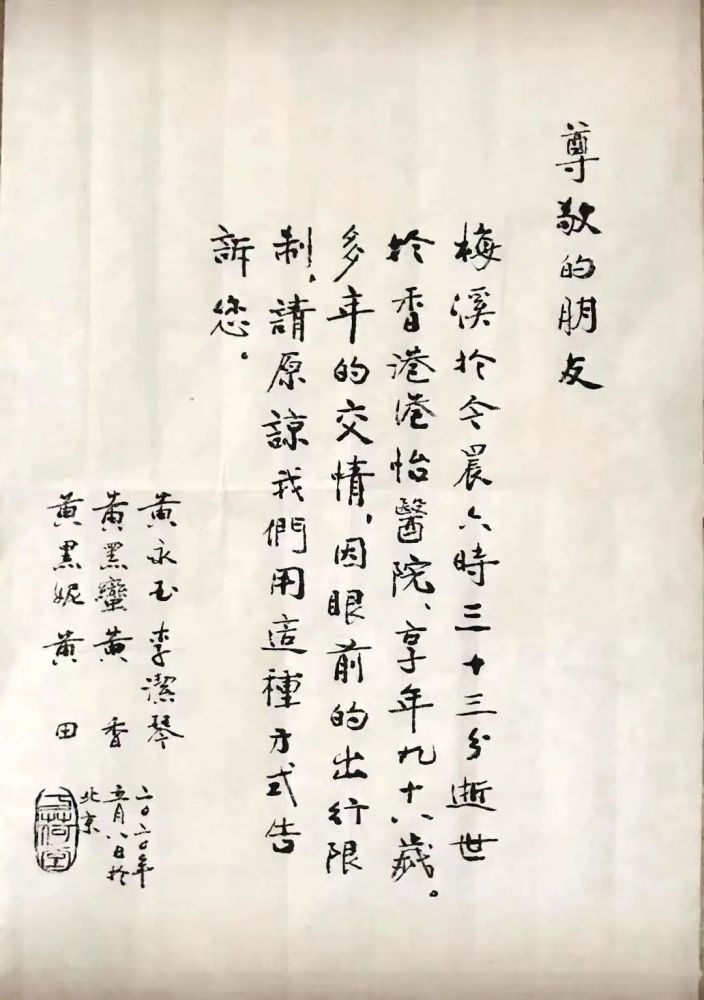 尊敬的朋友
梅溪扵今晨六時三十三分逝世
扵香港港怡醫院、享年九十八歲。
多年的交情,因眼前的出行限
制,請原諒我們用這種方式告
訴您。
黄永玉 李潔琴
黄黑蠻 黄香
黄黑妮 黄田
二〇二〇年
五月八日扵
北京